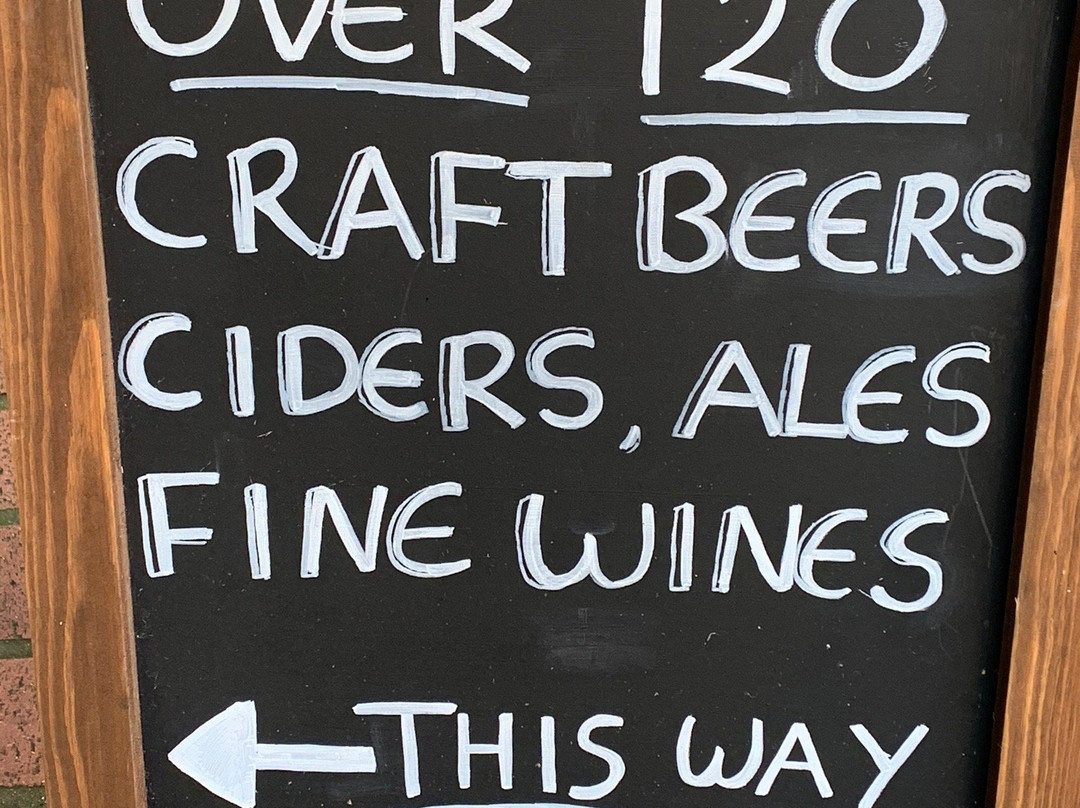 OVER 120
CRAFT BEERS
CIDERS, ALES
FINE WINES
THIS WAY